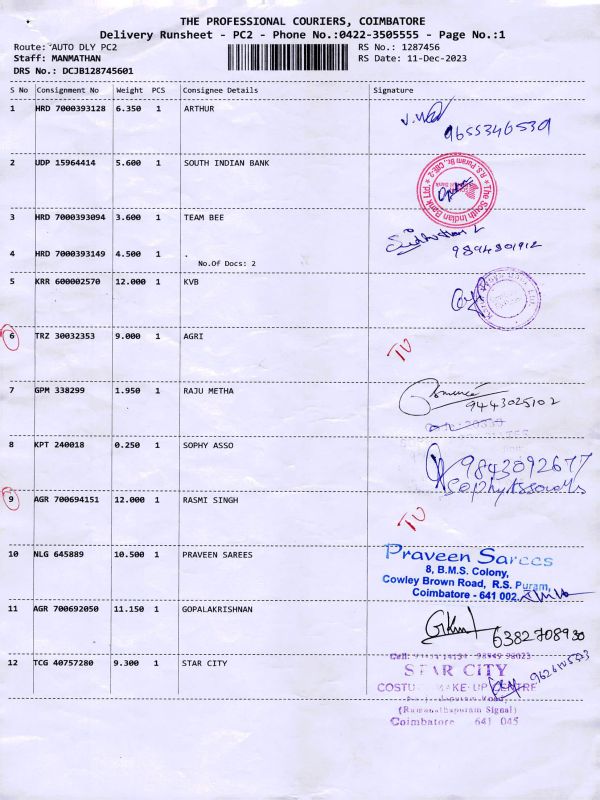 THE PROFESSIONAL COURIERS, COIMBATORE
Delivery Runsheet - PC2 - Phone No.:0422-3505555 - Page No.:1
Route: AUTO DLY PC2 RS No.: 1287456
Staff: MANMATHAN RS Date: 11-Dec-2023
DRS No.: DCJB128745601
S No Consignment No Weight PCS Consignee Details Signature
1 HRD 7000393128 6.350 1 ARTHUR
9655346539
2 UDP 15964414 5.600 1 SOUTH INDIAN BANK
The South Indian Bank Ltd. * R.S. Puram Br. CBE-2 *
3 HRD 7000393094 3.600 1 TEAM BEE
4 HRD 7000393149 4.500 1 .
9894301912
No.Of Docs: 2
5 KRR 600002570 12.000 1 KVB
6 TRZ 30032353 9.000 1 AGRI
TU
7 GPM 338299 1.950 1 RAJU METHA
9443025102
8 KPT 240018 0.250 1 SOPHY ASSO
9843092677
9 AGR 700694151 12.000 1 RASMI SINGH
TU
10 NLG 645889 10.500 1 PRAVEEN SAREES
Praveen Sarees
8, B.M.S. Colony,
Cowley Brown Road, R.S. Puram,
Coimbatore - 641 002
11 AGR 700692050 11.150 1 GOPALAKRISHNAN
6382708930
12 TCG 40757280 9.300 1 STAR CITY
98949 98023
STAR CITY
MAKE-UP CENTRE
(Ramanathapuram Signal)
Coimbatore 641 045